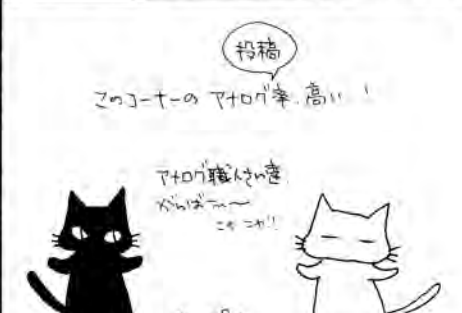 投稿
このコーナーの アナログ率 高い !
アナログ職人さん達
がんばれ〜